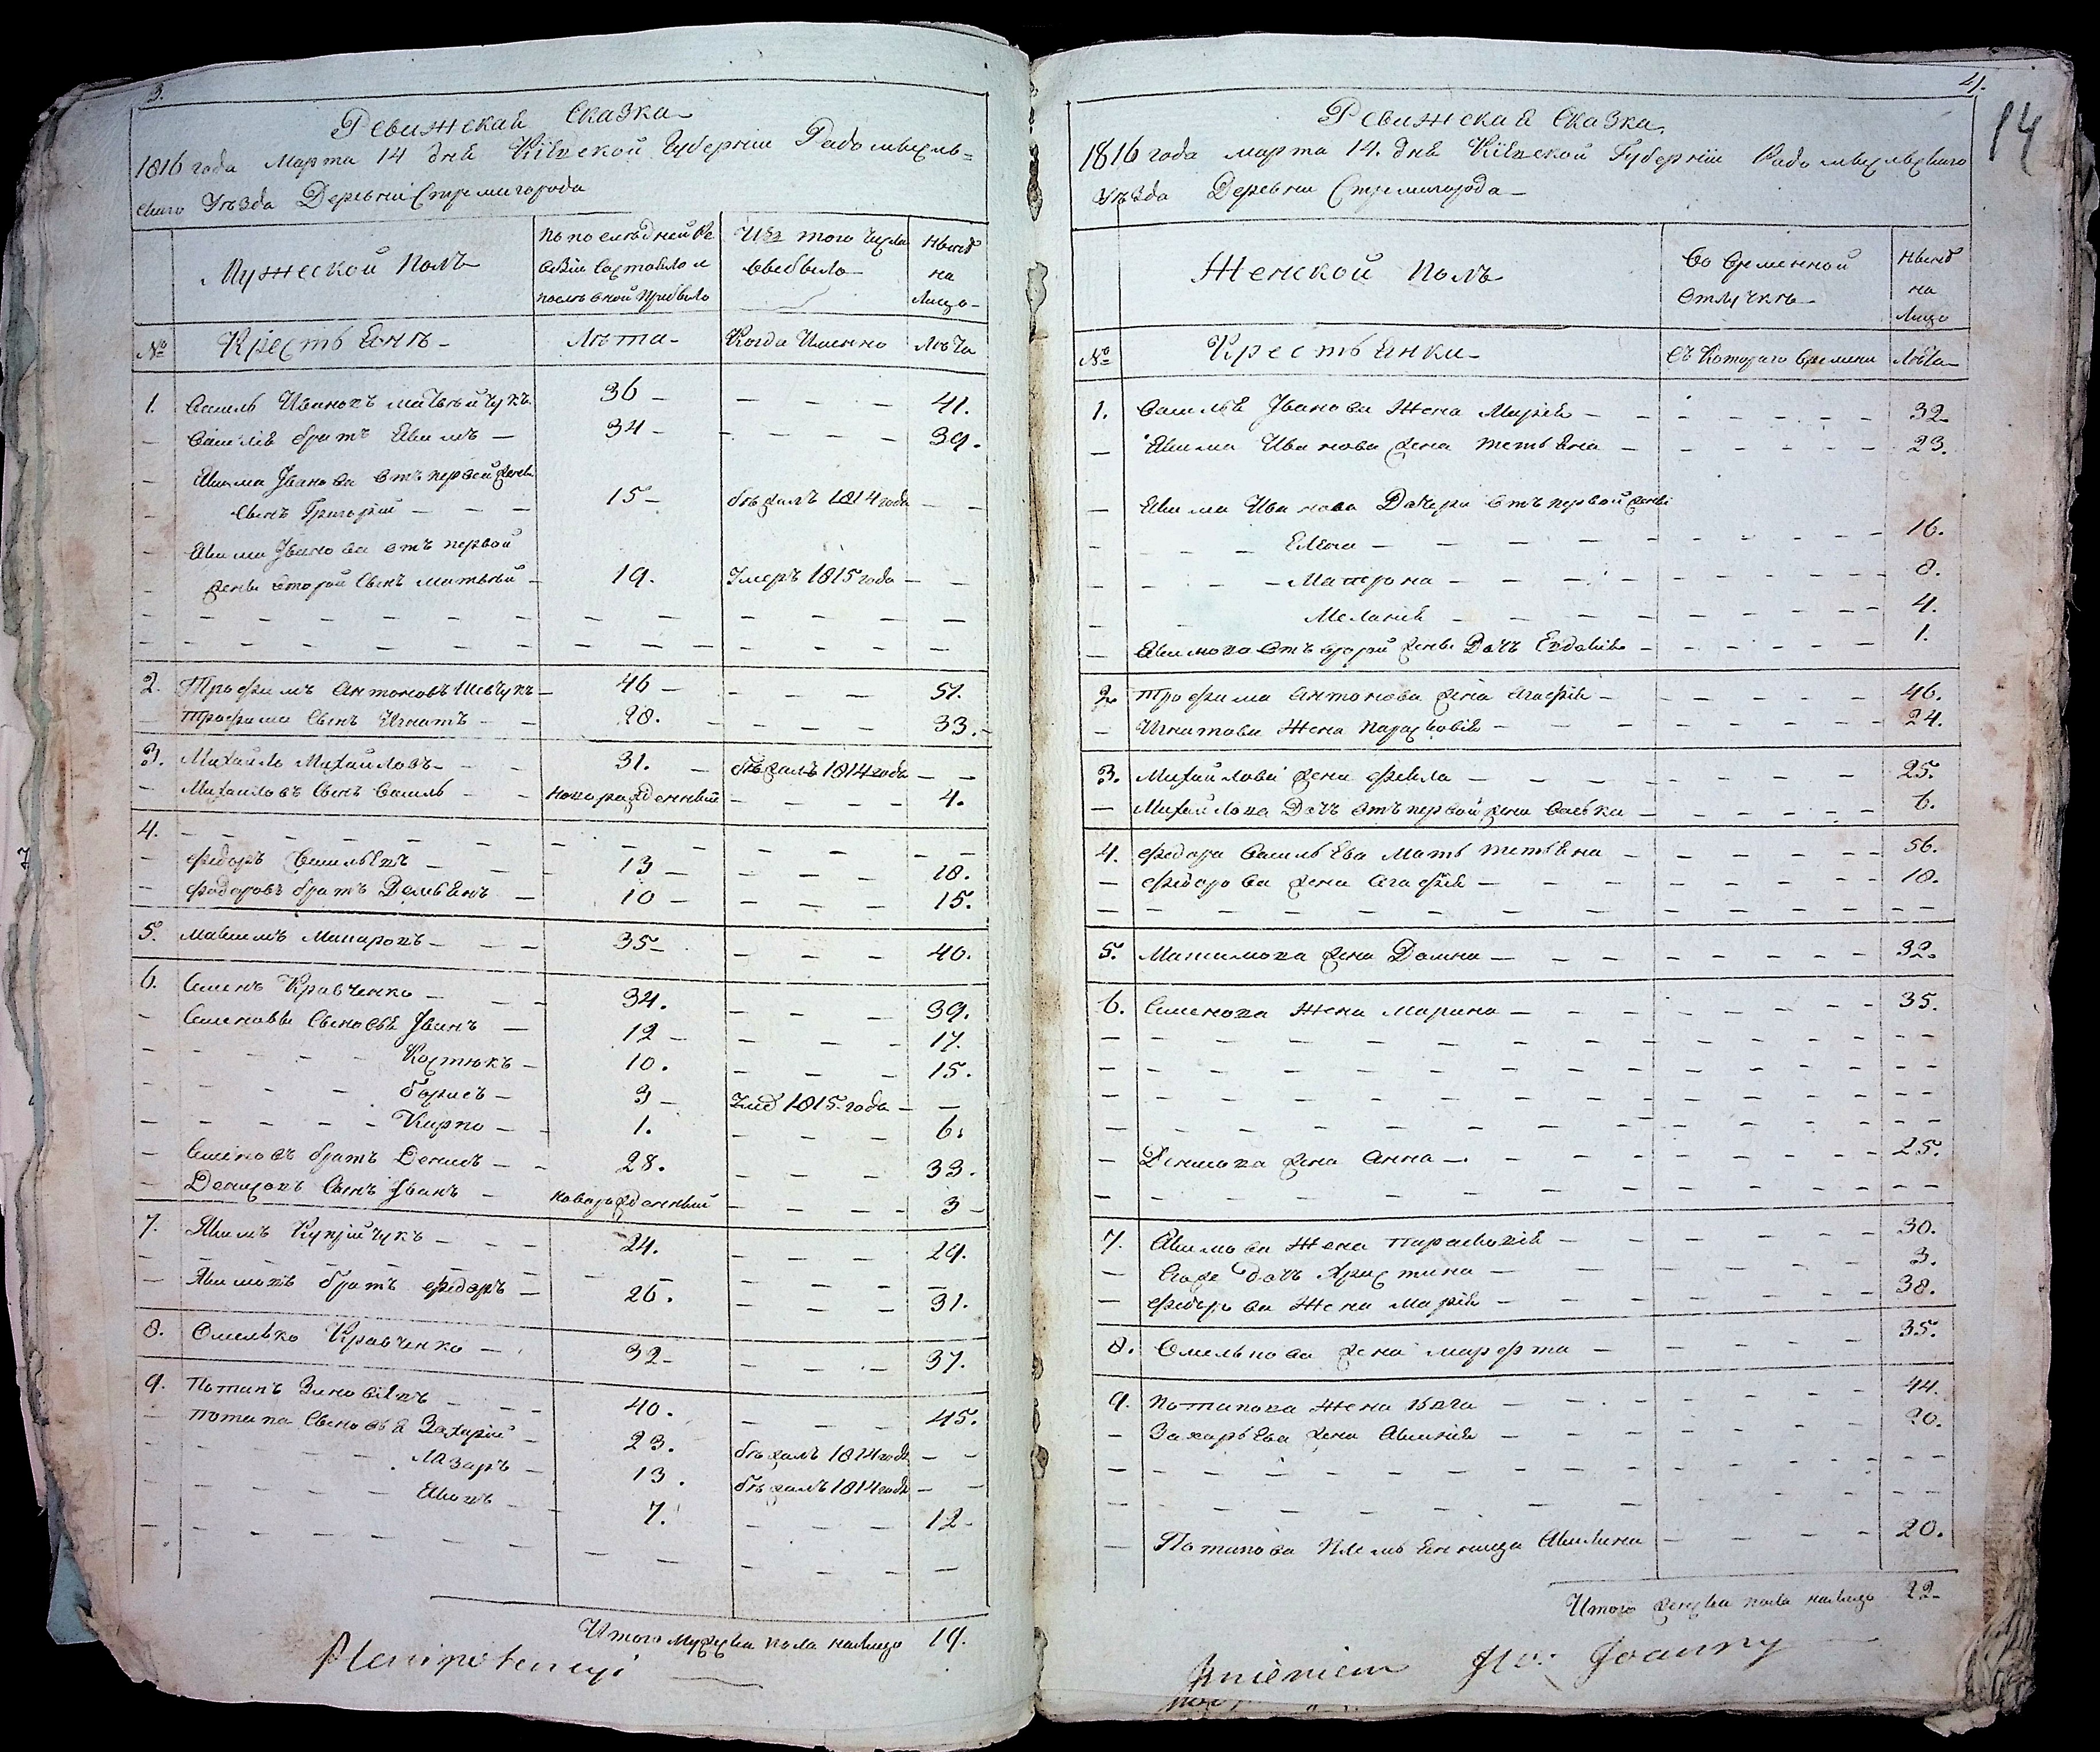 3.
Ревижская Сказка
1816 года Марта 14 дня Кіевской Губерніи Радомысль=
скаго Уѣзда Деревни Стремигорода
Мужеской полъ
По последней Ре
визіи состояло и
послѣ оной прибыло
Изъ того числа
выбыло
Нынѣ
на
лицо
№ Крестьянъ Лѣта Когда Именно Лѣта
1. Василь Ивановъ Матвѣйчукъ 36 41.
Василія братъ Якимъ 34 39.
Якима Иванова отъ первой жены
сынъ Григорій 15 бѣжалъ 1814 года
Якима Иванова отъ первой
жены второй сынъ Матвѣй 19. Умеръ 1815 года
2. Трофимъ Антоновъ Шевчукъ 46 51.
Трофима сынъ Игнатъ 28. 33.
3. Михайло Михайловъ 31. бѣжалъ 1814 года
Михайловъ сынъ Василь новорожденный 4.
4.
Федоръ Васильевъ 13 18.
Федоровъ братъ Демьянъ 10 15.
5. Максимъ Макаровъ 35 40.
6. Семенъ Кравченко 34. 39.
Семеновы сыновья Иванъ 12 17.
Костюкъ 10. 15.
Борисъ 3 Умер 1815 года
Карпо 1. 6.
Семеновъ братъ Денисъ 28. 33.
Денисовъ сынъ Иванъ новорожденный 3
7. Якимъ Купрійчукъ 24. 29.
Якимовъ братъ Федоръ 26. 31.
8. Омелько Кравченко 32 37.
9. Потапъ Зиновіевъ 40. 45.
Потапа сыновья Захарій 23. бѣжалъ 1814 года
Лазаръ 13. бѣжалъ 1814 года
Яковъ 7. 12
Итого мужеска пола налицо 19.
Plenipotencyi
4.
14
Ревижская Сказка
1816 года марта 14. дня Кіевской Губерніи Радомысльскаго
Уѣзда Деревни Стремигорода
Женской полъ
Во временной
отлучкѣ
Нынѣ
на
лицо
№ Крестьянки Съ котораго времени Лѣта
1. Василія Иванова жена Марія 32
Якима Иванова жена Тетьяна 23.
Якима Иванова Дочери отъ первой жены
Елена 16.
Матрона 8.
Меланія 4.
Якимова отъ второй жены Дочь Евдокія 1.
2 Трофима Антонова жена Агафія 46.
Игнатова жена Парасковія 24.
3. Михайлова жена Фекла 25.
Михайлова Дочь отъ первой жены 6.
4. Федора Васильева Мать Тетьяна 56.
Федорова жена Агафія 18.
5. Максимова жена Домна 32.
6. Семенова жена Марина 35.
Денисова жена Анна 25.
7. Якимова жена Парасковія 30.
Его же дочь Христина 3.
Федорова жена Марія 38.
8. Омелькова жена Марфта 35.
9. Потапова жена Явга 44.
Захарьева жена Аксинія 20.
Потапова племьянница Акилина 20.
Итого женска пола налицо 22
Imieniem JW: Joanny